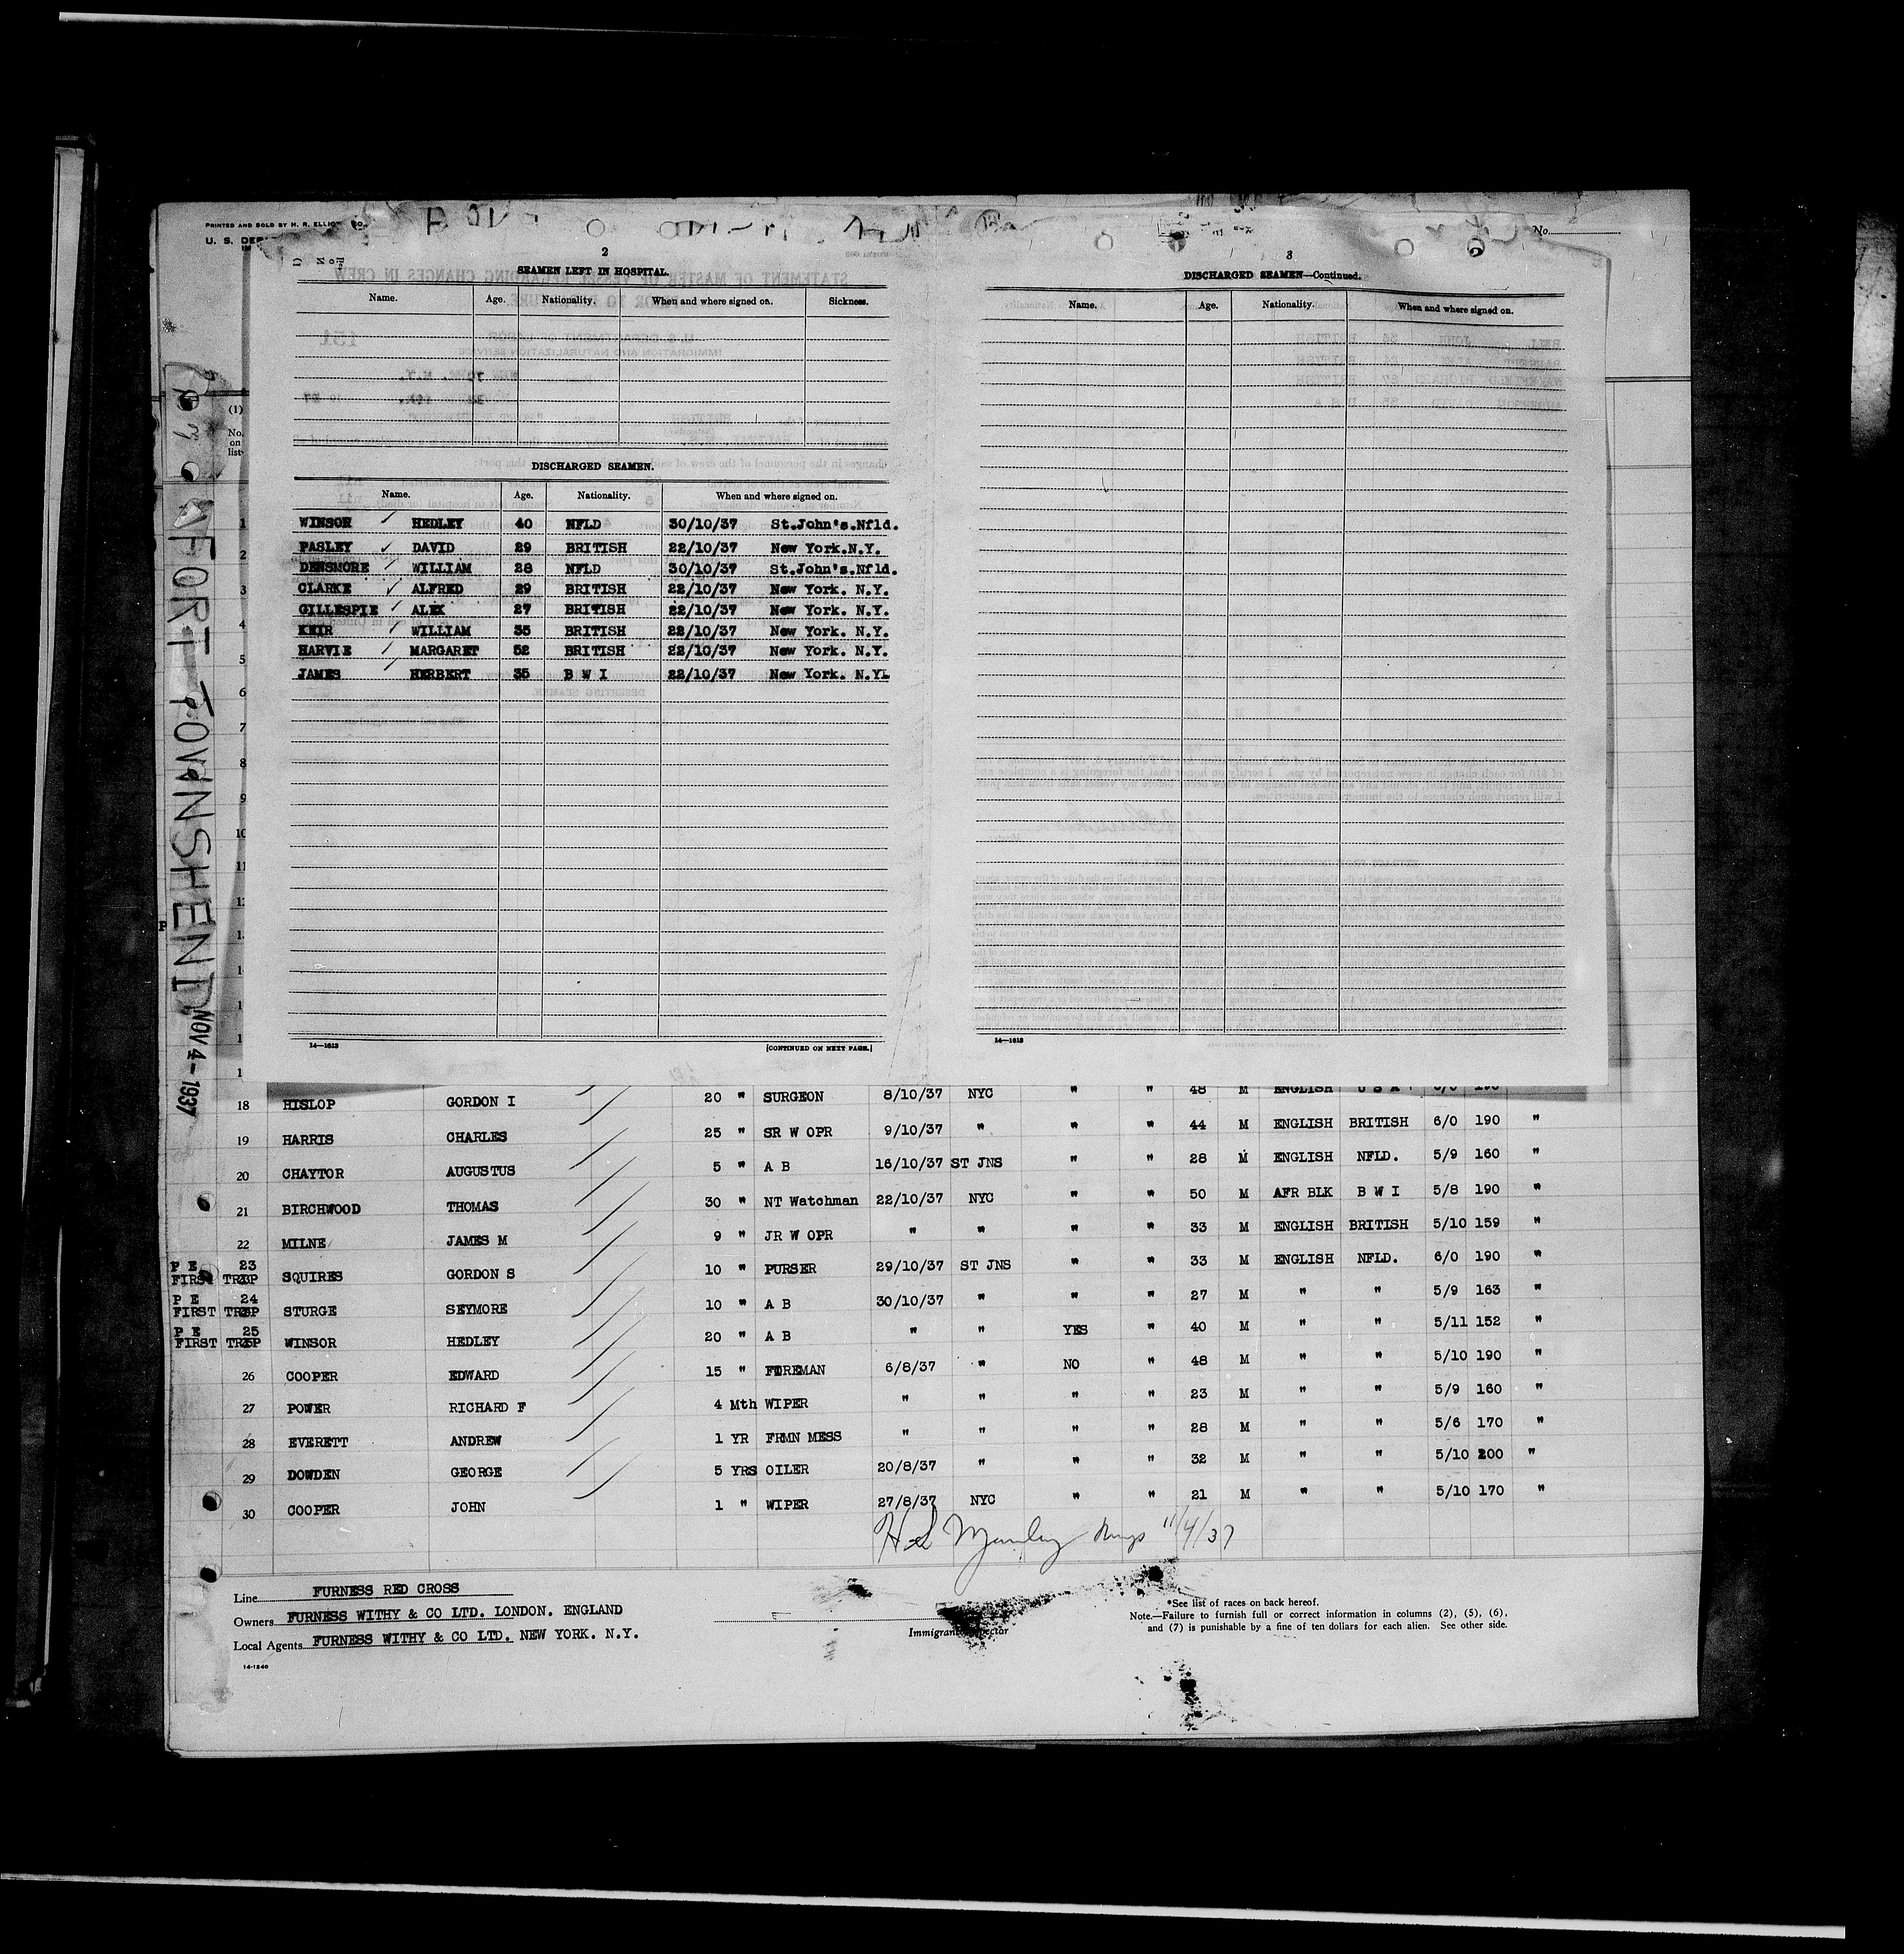 PRINTED AND SOLD BY H. R. ELLIOTT CO.
U. S. DEP
No.
2
SEAMEN LEFT IN HOSPITAL.
Name. Age. Nationality. When and where signed on. Sickness.
DISCHARGED SEAMEN.
Name. Age. Nationality. When and where signed on.
WINSOR ✓ HEDLEY 40 NFLD 30/10/37 St.John's.Nfld.
PASLEY ✓ DAVID 29 BRITISH 22/10/37 New York.N.Y.
DENSMORE ✓ WILLIAM 28 NFLD 30/10/37 St.John's.Nfld.
CLARKE ✓ ALFRED 29 BRITISH 22/10/37 New York. N.Y.
GILLESPIE ✓ ALEX 27 BRITISH 22/10/37 New York. N.Y.
KEIR ✓ WILLIAM 35 BRITISH 22/10/37 New York. N.Y.
HARVIE ✓ MARGARET 52 BRITISH 22/10/37 New York. N.Y.
JAMES ✓ HERBERT 35 B W I 22/10/37 New York. N.Y.
14—1613
[CONTINUED ON NEXT PAGE.]
3
DISCHARGED SEAMEN—Continued.
Name. Age. Nationality. When and where signed on.
14—1613
(1)
No.
on
list
1
2
3
4
5
6
7
8
9
10
11
FORT TOWNSHEND NOV 4-1937
18 HISLOP GORDON I 20 " SURGEON 8/10/37 NYC " " 48 M ENGLISH U S A
19 HARRIS CHARLES 25 " SR W OPR 9/10/37 " " " 44 M ENGLISH BRITISH 6/0 190 "
20 CHAYTOR AUGUSTUS 5 " A B 16/10/37 ST JNS " " 28 M ENGLISH NFLD. 5/9 160 "
21 BIRCHWOOD THOMAS 30 " NT Watchman 22/10/37 NYC " " 50 M AFR BLK B W I 5/8 190 "
22 MILNE JAMES M 9 " JR W OPR " " " " 33 M ENGLISH BRITISH 5/10 159 "
P E 23
FIRST TRIP SQUIRES GORDON S 10 " PURSER 29/10/37 ST JNS " " 33 M ENGLISH NFLD. 6/0 190 "
P E 24
FIRST TRIP STURGE SEYMORE 10 " A B 30/10/37 " " " 27 M " " 5/9 163 "
P E 25
FIRST TRIP WINSOR HEDLEY 20 " A B " " YES " 40 M " " 5/11 152 "
26 COOPER EDWARD 15 " FOREMAN 6/8/37 " NO " 48 M " " 5/10 190 "
27 POWER RICHARD F 4 Mth WIPER " " " " 23 M " " 5/9 160 "
28 EVERETT ANDREW 1 YR FRMN MESS " " " " 28 M " " 5/6 170 "
29 DOWDEN GEORGE 5 YRS OILER 20/8/37 " " " 32 M " " 5/10 200 "
30 COOPER JOHN 1 " WIPER 27/8/37 NYC " " 21 M " " 5/10 170 "
11/4/37
Line FURNESS RED CROSS
Owners FURNESS WITHY & CO LTD. LONDON. ENGLAND
Local Agents FURNESS WITHY & CO LTD. NEW YORK. N.Y.
14-1240
Immigrant Inspector
*See list of races on back hereof.
Note.—Failure to furnish full or correct information in columns (2), (5), (6),
and (7) is punishable by a fine of ten dollars for each alien. See other side.